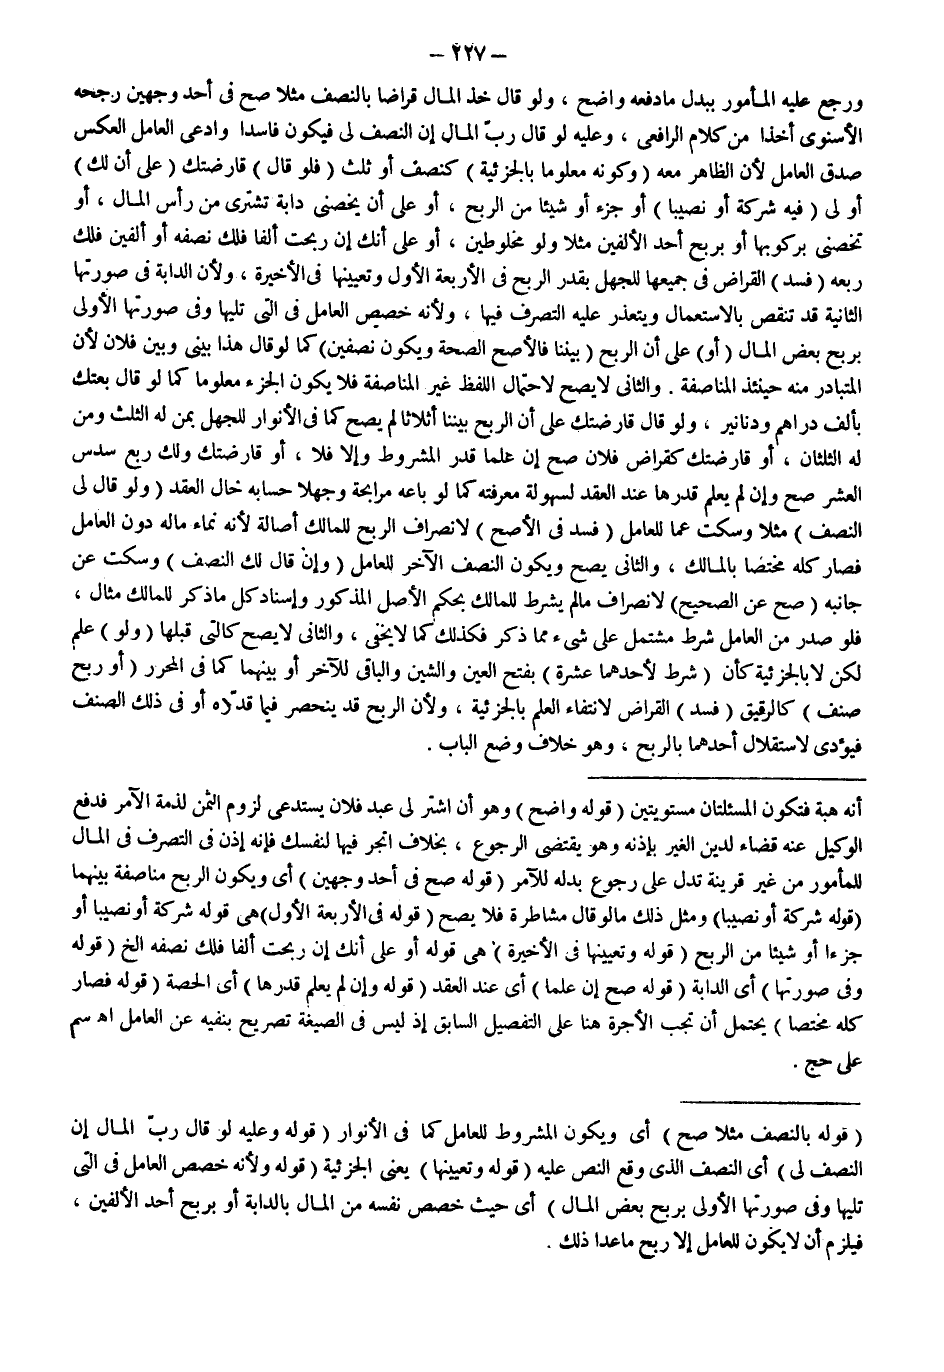 – ٢٢٧ –
ورجع عليه المأمور ببدل مادفعه واضح ، ولو قال خذ المال قراضا بالنصف مثلا صح فى أحد وجهين رجحه
الأسنوى أخذا من كلام الرافعى ، وعليه لو قال ربّ المال إن النصف لى فيكون فاسدا وادعى العامل العكس
صدق العامل لأن الظاهر معه ( وكونه معلوما بالجزئية ) كنصف أو ثلث ( فلو قال ) قارضتك ( على أن لك )
أو لى ( فيه شركة أو نصيبا ) أو جزء أو شيئا من الربح ، أو على أن يخصنى دابة تشترى من رأس المال ، أو
تخصنى بركوبها أو بربح أحد الألفين مثلا ولو مخلوطين ، أو على أنك إن ربحت ألفا فلك نصفه أو ألفين فلك
ربعه ( فسد ) القراض فى جميعها للجهل بقدر الربح فى الأربعة الأول وتعيينها فى الأخيرة ، ولأن الدابة فى صورتها
الثانية قد تنقص بالاستعمال ويتعذر عليه التصرف فيها ، ولأنه خصص العامل فى التى تليها وفى صورتها الأولى
بربح بعض المال ( أو) على أن الربح ( بيننا فالأصح الصحة ويكون نصفين) كما لوقال هذا بينى وبين فلان لأن
المتبادر منه حينئذ المناصفة . والثانى لايصح لاحتمال اللفظ غير المناصفة فلا يكون الجزء معلوما كما لو قال بعتك
بألف دراهم ودنانير ، ولو قال قارضتك على أن الربح بيننا أثلاثا لم يصح كما فى الأنوار للجهل بمن له الثلث ومن
له الثلثان ، أو قارضتك كقراض فلان صح إن علما قدر المشروط وإلا فلا ، أو قارضتك ولك ربع سدس
العشر صح وإن لم يعلم قدرها عند العقد لسهولة معرفته كما لو باعه مرابحة وجهلا حسابه حال العقد ( ولو قال لى
النصف ) مثلا وسكت عما للعامل ( فسد فى الأصح ) لانصراف الربح للمالك أصالة لأنه نماء ماله دون العامل
فصار كله مختصا بالمالك ، والثانى يصح ويكون النصف الآخر للعامل ( وإن قال لك النصف ) وسكت عن
جانبه ( صح عن الصحيح) لانصراف مالم يشرط للمالك بحكم الأصل المذكور وإسناد كل ماذكر للمالك مثال ،
فلو صدر من العامل شرط مشتمل على شىء مما ذكر فكذلك كما لايخفى ، والثانى لايصح كالتى قبلها ( ولو ) علم
لكن لا بالجزئية كأن ( شرط لأحدهما عشرة ) بفتح العين والشين والباقى للآخر أو بينهما كما فى المحرر ( أو ربح
صنف ) كالرقيق ( فسد ) القراض لانتفاء العلم بالجزئية ، ولأن الربح قد ينحصر فيما قدّلاه أو فى ذلك الصنف
فيؤدى لاستقلال أحدهما بالربح ، وهو خلاف وضع الباب .
أنه هبة فتكون المسئلتان مستويتين ( قوله واضح ) وهو أن اشتر لى عبد فلان يستدعى لزوم الثمن لذمة الآمر فدفع
الوكيل عنه قضاء لدين الغير بإذنه وهو يقتضى الرجوع ، بخلاف اتجر فيها لنفسك فإنه إذن فى التصرف فى المال
للمأمور من غير قرينة تدل على رجوع بدله للآمر ( قوله صح فى أحد وجهين ) أى ويكون الربح مناصفة بينهما
(قوله شركة أو نصيبا) ومثل ذلك مالوقال مشاطرة فلا يصح ( قوله فى الأربعة الأول)هى قوله شركة أونصيبا أو
جزءا أو شيئا من الربح ( قوله وتعيينها فى الأخيرة ) هى قوله أو على أنك إن ربحت ألفا فلك نصفه الخ ( قوله
وفى صورتها ) أى الدابة ( قوله صح إن علما ) أى عند العقد ( قوله وإن لم يعلم قدرها ) أى الحصة ( قوله فصار
كله مختصا ) يحتمل أن تجب الأجرة هنا على التفصيل السابق إذ ليس فى الصيغة تصريح بنفيه عن العامل اهـ سم
على حج .
( قوله بالنصف مثلا صح ) أى ويكون المشروط للعامل كما فى الأنوار ( قوله وعليه لو قال ربّ المال إن
النصف لى ) أى النصف الذى وقع النص عليه ( قوله وتعيينها ) يعنى الجزئية ( قوله ولأنه خصص العامل فى التى
تليها وفى صورتها الأولى بربح بعض المال ) أى حيث خصص نفسه من المال بالدابة أو بربح أحد الألفين ،
فيلزم أن لايكون للعامل إلا ربح ماعدا ذلك .